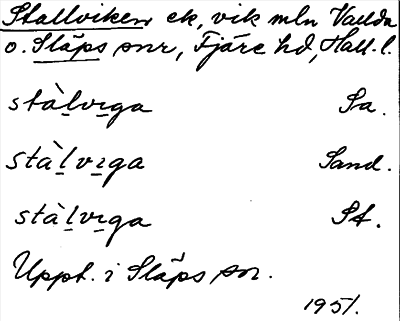 Stallviken ek, vik mln Vallda
o. Släps snr, Fjäre hd, Hall. l.
stàl̲vıga Sa.
stàl̲vıga Sand.
stàl̲vıga St.
Uppt. i Släps sn.
1951.